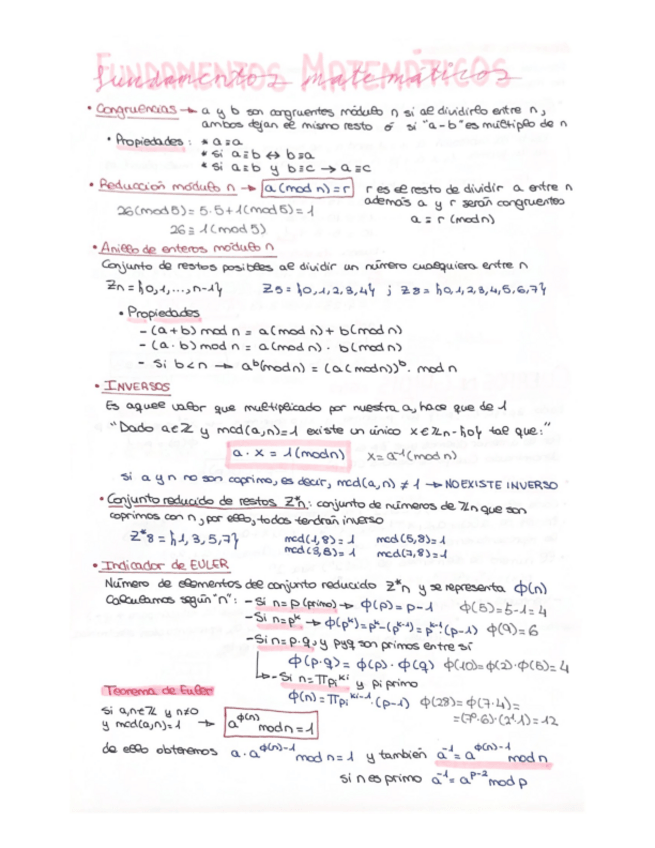 FUNDAMENTOS MATEMÁTICOS
fundamentos matemáticos
• Congruencias → a y b son congruentes módulo n si al dividirlo entre n,
ambos dejan el mismo resto ó si "a-b" es múltiplo de n
• Propiedades: * a≡a
* si a≡b ↔ b≡a
* si a≡b y b≡c → a≡c
• Reducción módulo n → a (mod n) = r r es el resto de dividir a entre n
además a y r serán congruentes
26 (mod 5) = 5·5+1 (mod 5) = 1 a ≡ r (mod n)
26 ≡ 1 (mod 5)
• Anillo de enteros módulo n
Conjunto de restos posibles al dividir un número cualquiera entre n
Zn = {0,1,...,n-1} Z5 = {0,1,2,3,4} ; Z8 = {0,1,2,3,4,5,6,7}
• Propiedades
- (a+b) mod n = a (mod n) + b (mod n)
- (a·b) mod n = a (mod n) · b (mod n)
- Si b<n → a^b (mod n) = (a (mod n))^b · mod n
• INVERSOS
Es aquel valor que multiplicado por nuestra a, hace que de 1
"Dado a∈Z y mcd(a,n)=1 existe un único x∈Zn-{0} tal que:"
a · x = 1 (mod n) x = a^-1 (mod n)
si a y n no son coprimo, es decir, mcd(a,n) ≠ 1 → NO EXISTE INVERSO
• Conjunto reducido de restos Z*n: conjunto de números de Zn que son
coprimos con n, por ello, todos tendrán inverso
Z*8 = {1,3,5,7} mcd(1,8)=1 mcd(5,8)=1
mcd(3,8)=1 mcd(7,8)=1
• Indicador de EULER
Número de elementos del conjunto reducido Z*n y se representa ϕ(n)
Calculamos según "n": - Si n=p (primo) → ϕ(p) = p-1 ϕ(5)=5-1=4
- Si n=p^k → ϕ(p^k) = p^k-(p^k-1) = p^k-1·(p-1) ϕ(9)=6
- Si n=p·q, y p y q son primos entre sí
ϕ(p·q) = ϕ(p)·ϕ(q) ϕ(10)=ϕ(2)·ϕ(5)=4
- Si n=∏pi^ki y pi primo
Teorema de Euler ϕ(n) = ∏pi^ki-1·(p-1) ϕ(28)=ϕ(7·4)=
si a,n∈Z y n≠0 =(7⁰·6)·(2¹·1)=12
y mcd(a,n)=1 → a^ϕ(n) mod n = 1
de ello obtenemos a·a^ϕ(n)-1 mod n = 1 y también a^-1 = a^ϕ(n)-1 mod n
si n es primo a^-1 = a^p-2 mod p